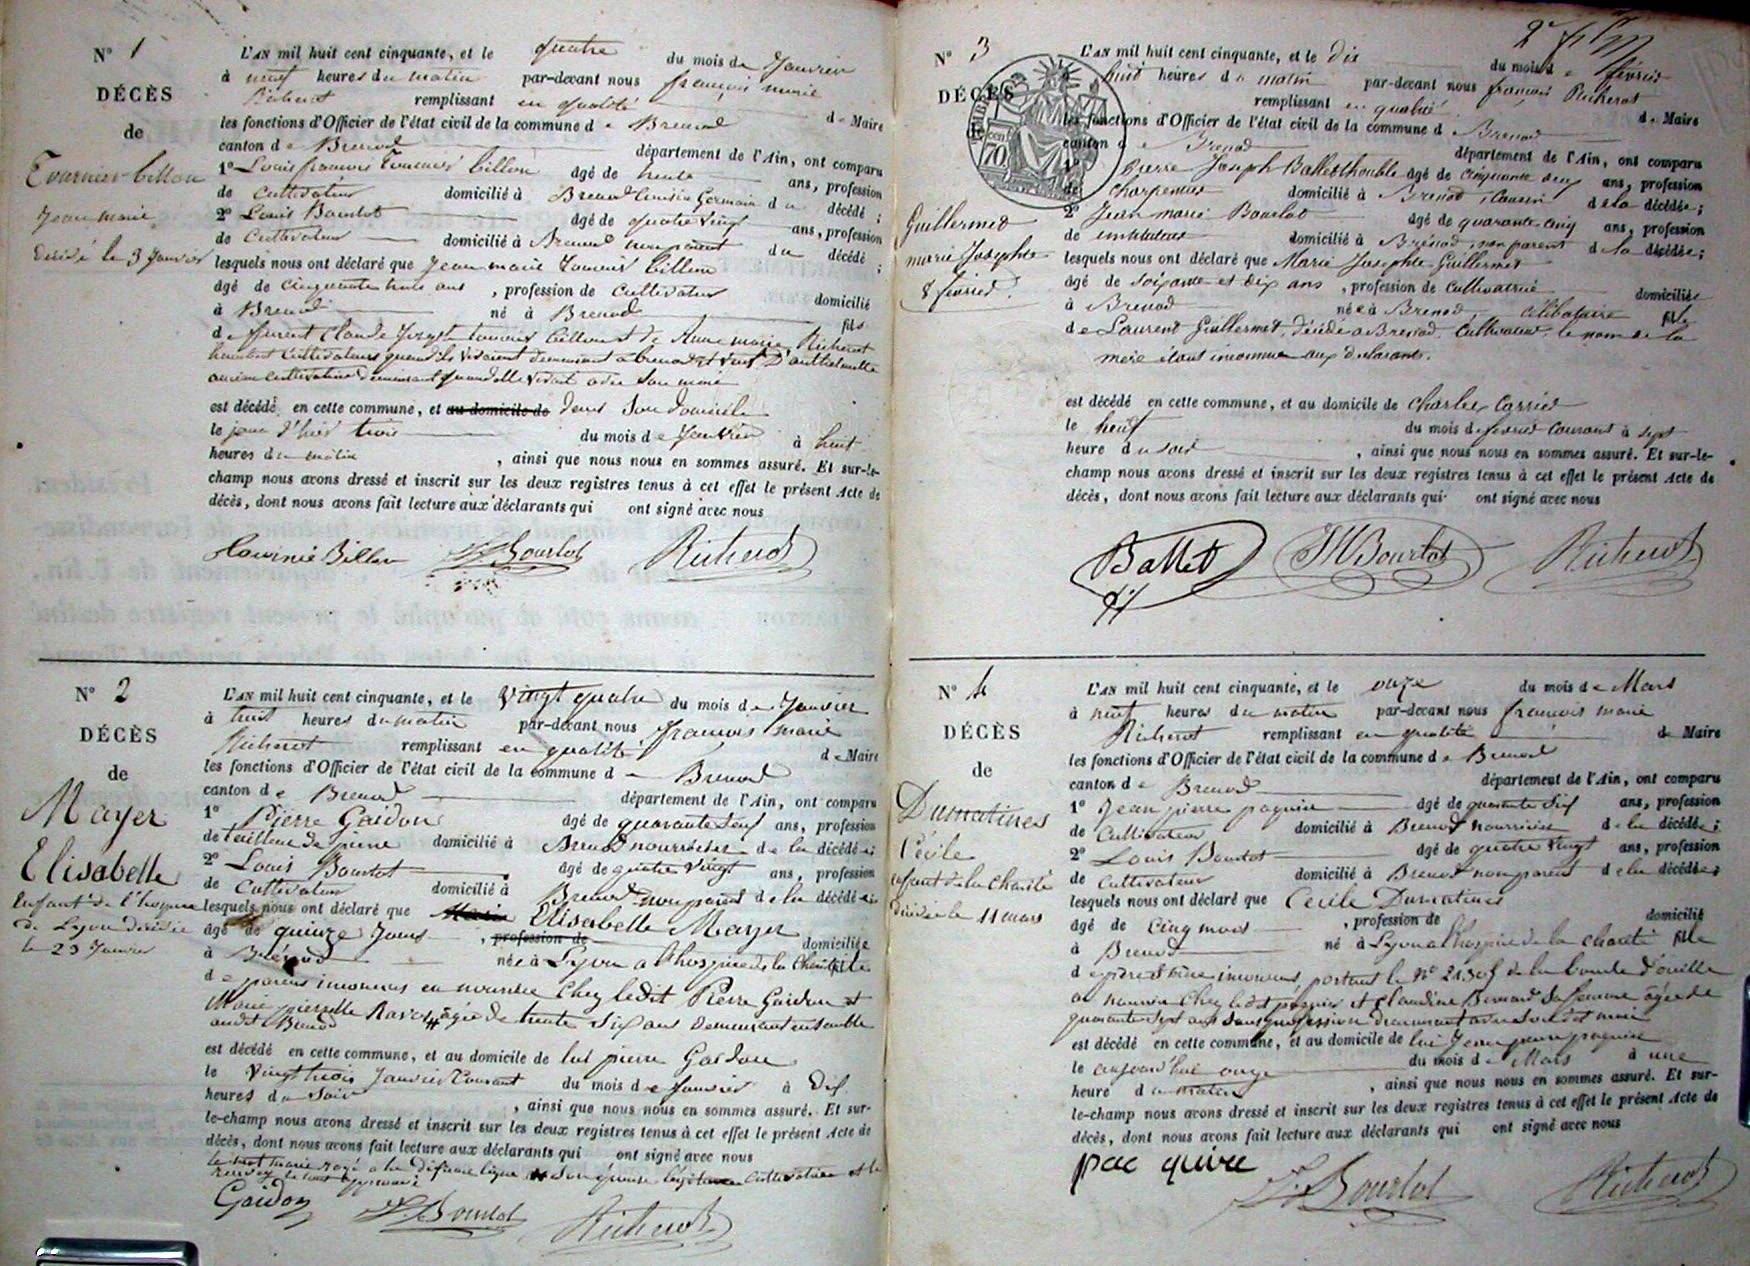 N° 1
DÉCÈS
de
Tournier billon
Jean marie
décédé le 3 Janvier
L'AN mil huit cent cinquante, et le quatre du mois de Janvier
à neuf heures du matin par-devant nous françois marie
Richerot remplissant en qualité de Maire
les fonctions d'Officier de l'état civil de la commune de Brenod
canton de Brenod département de l'Ain, ont comparu
1° Louis francois Tournier billon âgé de trente ans, profession
de cultivateur domicilié à Brenod Cousin Germain du décédé ;
2° Louis Bourlot âgé de quatre vingt ans, profession
de Cultivateur domicilié à Brenod non parent du décédé ;
lesquels nous ont déclaré que Jean marie Tournier billon
âgé de cinquante ans , profession de Cultivateur domicilié
à Brenod né à Brenod fils
de Claude Joseph tournier billon et de Anne marie Richerot
cultivateurs quand ils vivaient demeurant a brenod et
demeurant quand elle vivait avec son mari
est décédé en cette commune, et au domicile de dans Son domicile
le jour d'hier trois du mois de Janvier à huit
heures du matin , ainsi que nous nous en sommes assuré. Et sur-le-
champ nous avons dressé et inscrit sur les deux registres tenus à cet effet le présent Acte de
décès, dont nous avons fait lecture aux déclarants qui ont signé avec nous
Billon L. Bourlot Richerot
N° 2
DÉCÈS
de
Mayer
Elisabelle
Enfant de l'hospice
de Lyon décédée
le 23 Janvier
L'AN mil huit cent cinquante, et le Vingt quatre du mois de Janvier
à huit heures du matin par-devant nous françois marie
Richerot remplissant en qualité de Maire
les fonctions d'Officier de l'état civil de la commune de Brenod
canton de Brenod département de l'Ain, ont comparu
1° Pierre Gaidon âgé de quarante neuf ans, profession
de tailleur de pierre domicilié à Brenod nourricier de la décédée ;
2° Louis Bourlot âgé de quatre Vingt ans, profession
de Cultivateur domicilié à Brenod non parent de la décédée
lesquels nous ont déclaré que Marie Elisabelle Mayer
âgé de quinze Jours , profession de domiciliée
à Brénod née à Lyon a l'hospice de la Charité fille
de parens inconnus en nourrice chez ledit Pierre Gaidon et
Marie pierrette Ravot # agée de trente Six ans demeurant ensemble
audit Brenod
est décédé en cette commune, et au domicile de lui pierre Gaidon
le Vingt trois Janvier Courant du mois de Janvier à dix
heures du soir , ainsi que nous nous en sommes assuré. Et sur-
le-champ nous avons dressé et inscrit sur les deux registres tenus à cet effet le présent Acte de
décès, dont nous avons fait lecture aux déclarants qui ont signé avec nous
le mot marie rayé a la dixieme ligne # son épouse légitime Cultivatrice et le
renvoy approuvé
Gaidon L. Bourlot Richerot
2e f
N° 3
DÉCÈS
TIMBRE
70 cent
Guillermet
marie Josephte
8 février.
L'AN mil huit cent cinquante, et le dix du mois de février
à huit heures du matin par-devant nous françois Richerot
remplissant en qualité de Maire
les fonctions d'Officier de l'état civil de la commune d Brenod
canton de Brenod département de l'Ain, ont comparu
1° Pierre Joseph Ballet âgé de cinquante deux ans, profession
de charpentier domicilié à Brenod, cousin de la décédée ;
2° Jean marie Bourlot âgé de quarante cinq ans, profession
de instituteur domicilié à Brénod, non parent de la décédée ;
lesquels nous ont déclaré que Marie Josephte Guillermet
âgé de soixante et dix ans , profession de cultivatrice domiciliée
à Brenod née à Brenod, célibataire fille
de Laurent Guillermet, décédé à Brenod, cultivateur, le nom de la
mère étant inconnu aux déclarants.
est décédé en cette commune, et au domicile de charles Carrier
le huit du mois de fevrier courant à sept
heure du soir , ainsi que nous nous en sommes assuré. Et sur-le-
champ nous avons dressé et inscrit sur les deux registres tenus à cet effet le présent Acte de
décès, dont nous avons fait lecture aux déclarants qui ont signé avec nous
Ballet JM Bourlot Richerot
N° 4
DÉCÈS
de
Dumatines
Cécile
enfant de la charité
décédée le 11 mars
L'AN mil huit cent cinquante, et le onze du mois de Mars
à neuf heures du matin par-devant nous françois marie
Richerot remplissant en qualité de Maire
les fonctions d'Officier de l'état civil de la commune de Brenod
canton de Brenod département de l'Ain, ont comparu
1° Jean pierre paquier âgé de quarante Six ans, profession
de Cultivateur domicilié à Brenod nourricier de la décédée ;
2° Louis Bourlot âgé de quatre Vingt ans, profession
de Cultivateur domicilié à Brenod non parent de la décédée
lesquels nous ont déclaré que Cecile Dumatines
âgé de Cinq mois , profession de domicilié
à Brenod né à Lyon a l'hospice de la charité fille
de père et mère inconnus, portant le N° 21.305 de la boucle d'oreille
en nourrice chez ledit paquier et Claudine Bernard Sa femme âgée de
quarante sept ans Sans profession demeurant avec son dit mari
est décédé en cette commune, et au domicile de lui Jean pierre paquier
le aujourd'hui onze du mois de Mars à une
heure du matin , ainsi que nous nous en sommes assuré. Et sur-
le-champ nous avons dressé et inscrit sur les deux registres tenus à cet effet le présent Acte de
décès, dont nous avons fait lecture aux déclarants qui ont signé avec nous
L. Bourlot Richerot